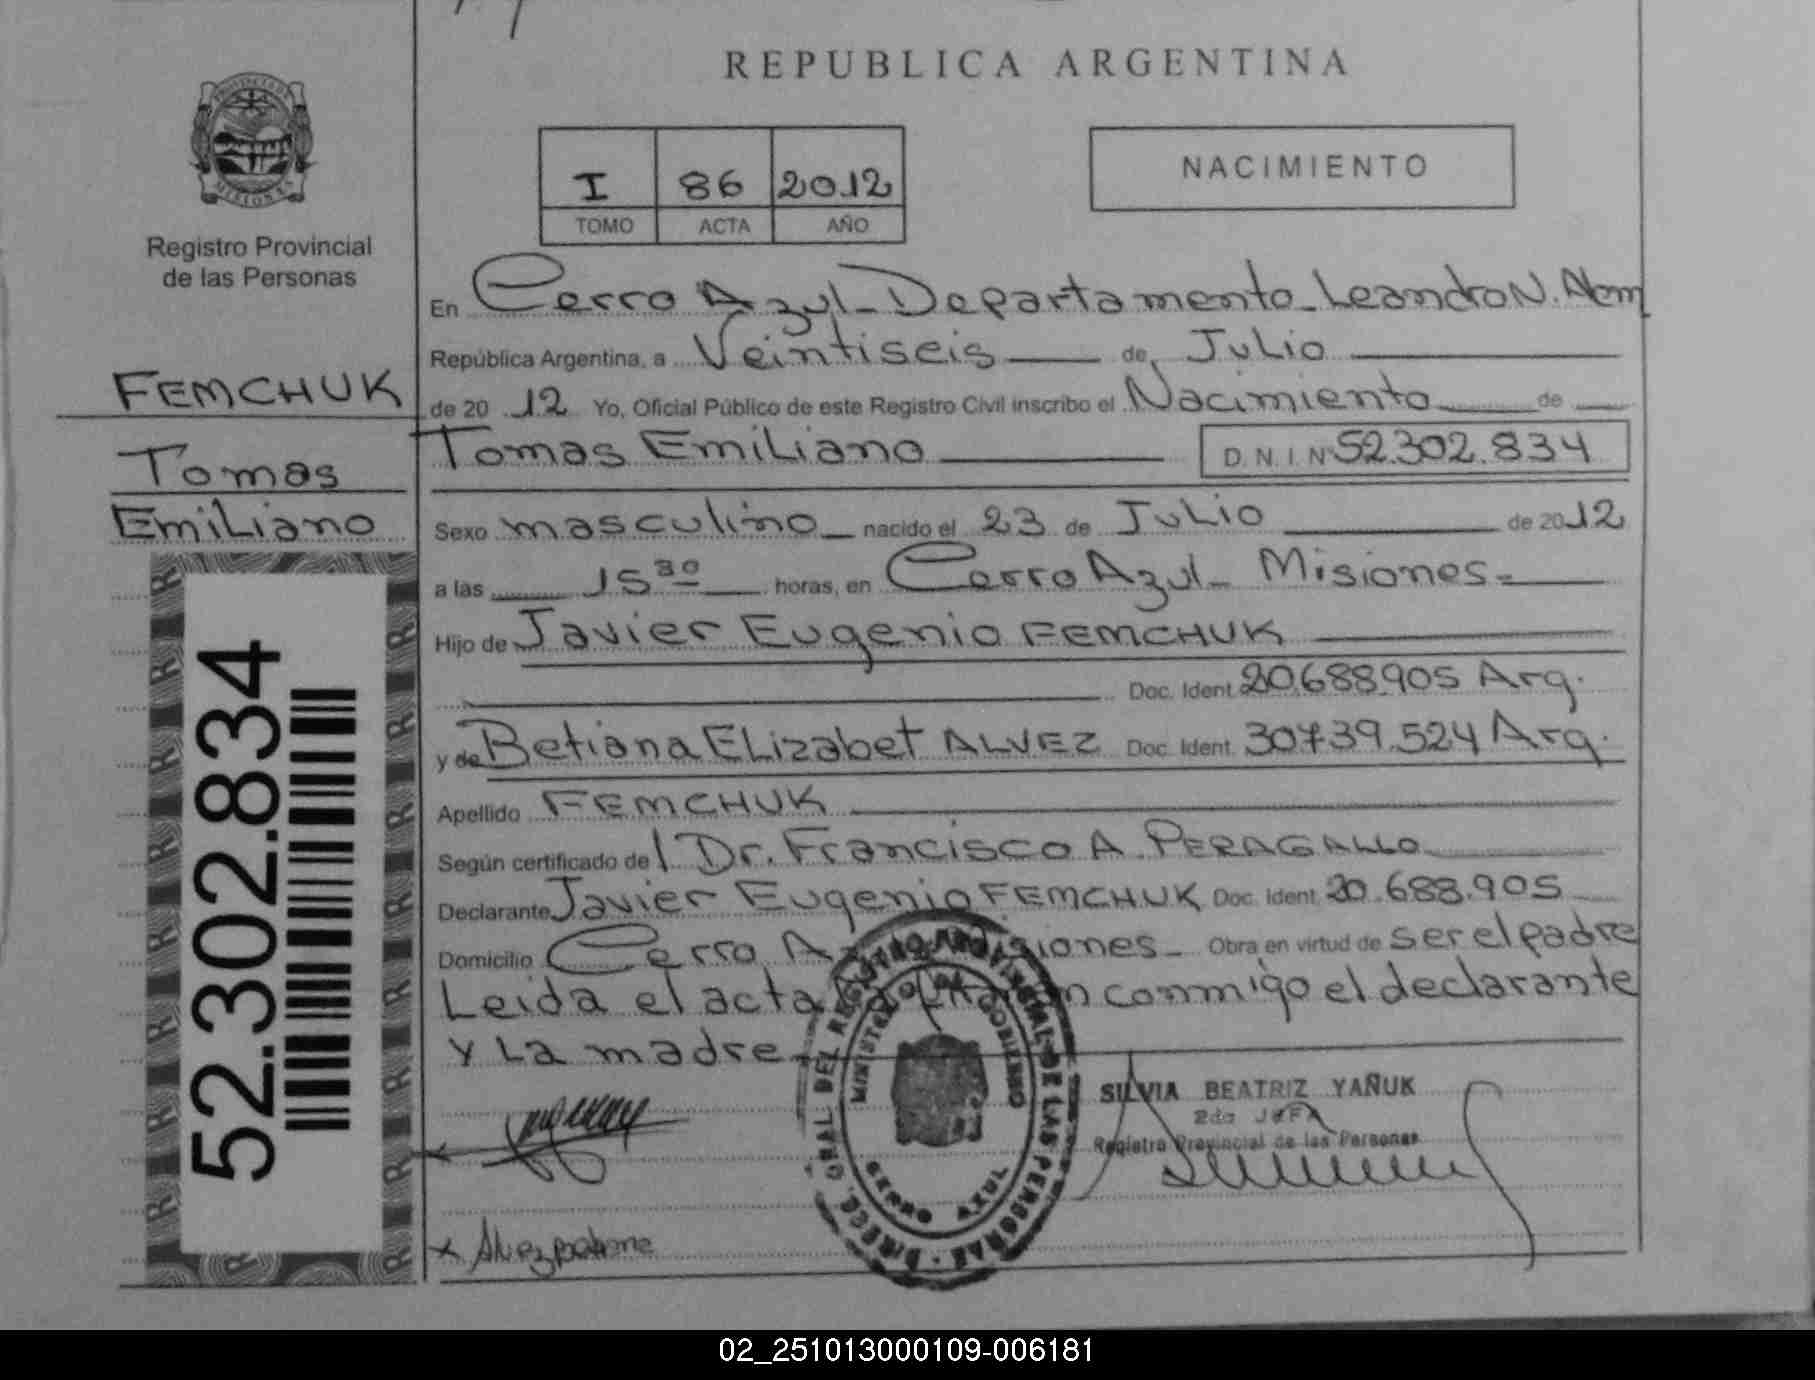 REPUBLICA ARGENTINA
PROVINCIA DE MISIONES
Registro Provincial
de las Personas
I 86 2012
TOMO ACTA AÑO
NACIMIENTO
FEMCHUK
Tomas
Emiliano
52.302.834
En Cerro Azul - Departamento - Leandro N. Alem
República Argentina, a Veintiseis de Julio
de 20 12 Yo, Oficial Público de este Registro Civil inscribo el Nacimiento de
Tomas Emiliano D.N.I. Nº 52.302.834
Sexo masculino nacido el 23 de Julio de 2012
a las 15 30 horas, en Cerro Azul - Misiones =
Hijo de Javier Eugenio FEMCHUK
Doc. Ident. 20.688.905 Arg.
y de Betiana ELizabet ALVEZ Doc. Ident. 30.739.524 Arg.
Apellido FEMCHUK
Según certificado del Dr. Francisco A. PERAGALLO
Declarante Javier Eugenio FEMCHUK Doc. Ident. 20.688.905
Domicilio Cerro Azul Misiones - Obra en virtud de ser el padre
Leida el acta la firman conmigo el declarante
y La madre
SILVIA BEATRIZ YAÑUK
2da JEFA
Registro Provincial de las Personas
DIRECC. GRAL DEL REGISTRO PROVINCIAL DE LAS PERSONAS
MINISTERIO DE GOBIERNO
CERRO AZUL
x Alvez Betiana
02_251013000109-006181